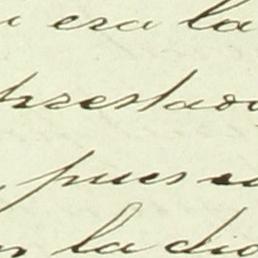 era la
prestado
, pues
la dio